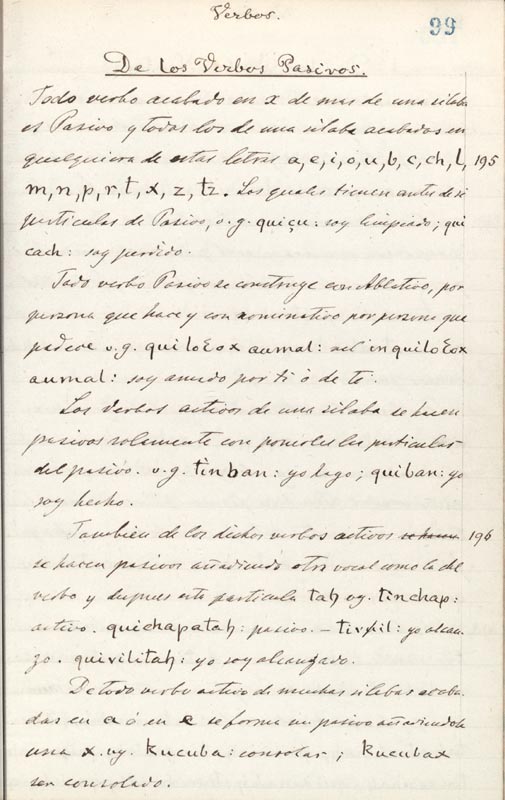 Verbos.
99
De los Verbos Pasivos.
Todo verbo acabado en x de mas de una silaba
es Pasivo y todos los de una silaba acabados en
qualquiera de estas letras a, e, i, o, u, b, c, ch, l, 195
m, n, p, r, t, x, z, tz. Los quales tienen antes de si
particulas de Pasivo, v.g. quiçu: soy limpiado; qui
cach: soy perdido.
Todo verbo Pasivo se construye con Ablativo, por
persona que hace y con nominativo por persona que
padece v.g. quiloɛox aumal: vel inquiloɛox
aumal: soy amado por ti ó de te.
Los Verbos activos de una silaba se hacen
pasivos solamente con ponerles las particulas
del pasivo. v.g. tinban: yo hago; quiban: yo
soy hecho.
Tambien de los dichos verbos activos se hacen 196
se hacen pasivos añadiendo otra vocal como la del
verbo y despues esta particula tah vg. tinchap:
activo. quichapatah: pasivo. - tivil: yo alcan
zo. quivilitah: yo soy alcanzado.
De todo verbo activo de muchas silabas acaba
das en a ó en e se forma un pasivo añadiendole
una x. vg. kucuba: consolar; kucubax
ser consolado.